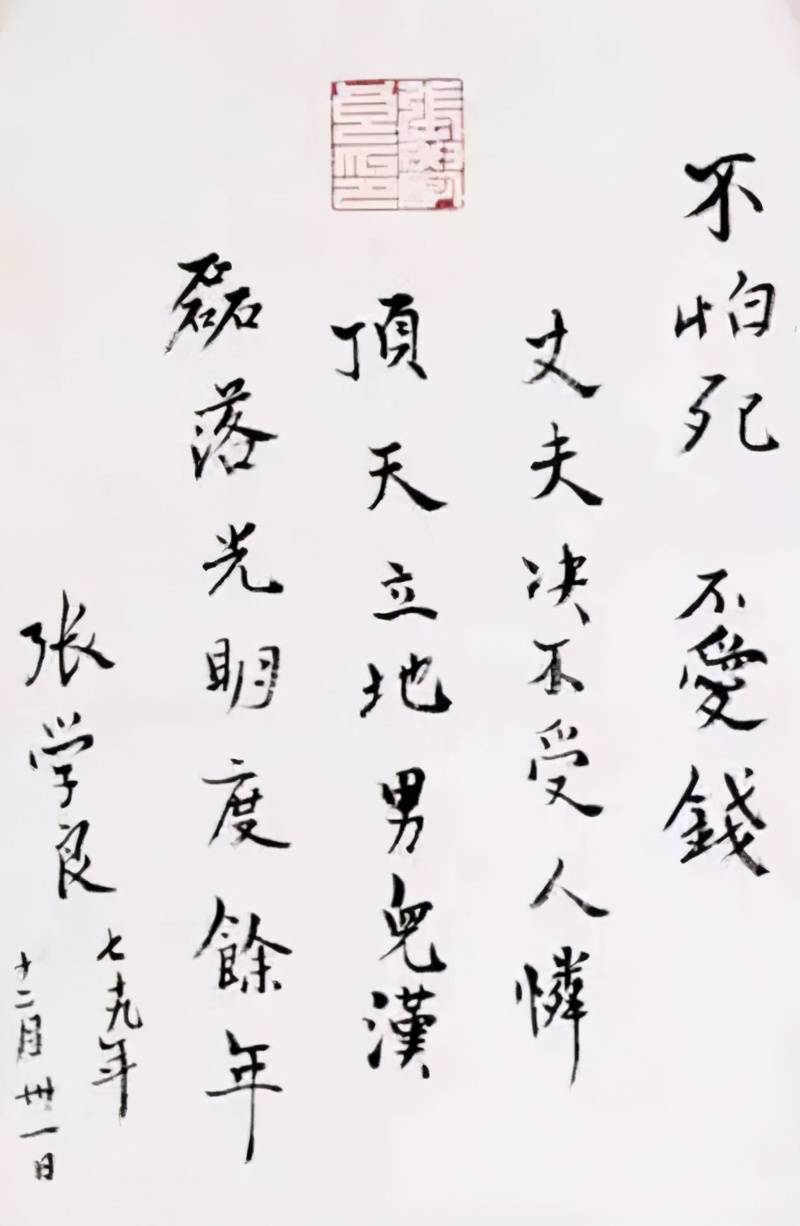 不怕死 不愛錢
丈夫决不受人憐
頂天立地男兒漢
磊落光明度餘年
張学良
七十九年
十二月卅一日